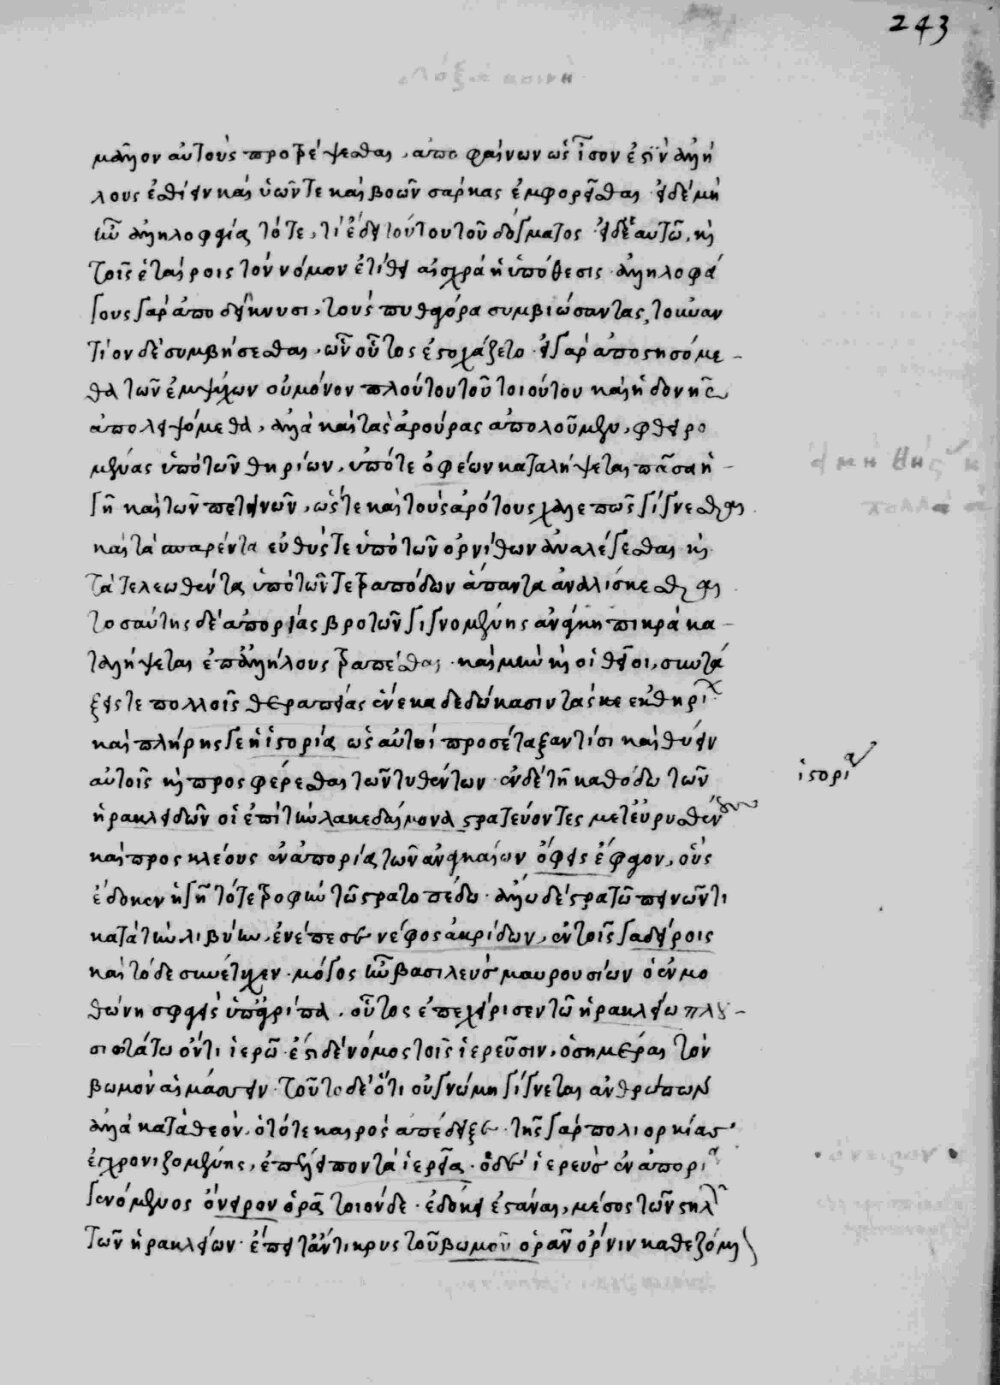 243
μᾶλλον αὐτοὺς προτρέψεσθαι, ἀποφαίνων ὡς ἶσον ἐστὶν ἀλλή
λους ἐσθίειν καὶ ὑῶν τε καὶ βοῶν σάρκας ἐμφορεῖσθαι. εἰ δὲ μὴ
ἦν ἀλληλοφαγία τότε, τί ἔδει τούτου τοῦ δόγματος. εἰ δὲ αὐτῶ, καὶ
τοῖς ἑταίροις τὸν νόμον ἐτίθει αἰσχρὰ ἡ ὑπόθεσις. ἀλληλοφά
γους γὰρ ἀποδείκνυσι, τοὺς πυθαγόρα συμβιώσαντας, τοὐναν
τίον δὲ συμβήσεσθαι, ὧν οὗτος ἐστοχάζετο. εἰ γὰρ ἀποστησόμε-
θα τῶν ἐμψύχων οὐ μόνον πλούτου τοῦ τοιούτου καὶ ἡδονῆς
ἀπολειψόμεθα, ἀλλὰ καὶ τὰς ἀρούρας ἀπολοῦμεν, φθειρο
μένας ὑπὸ τῶν θηρίων, ὑπό τε ὄφεων καταλήψεται πᾶσα ἡ-
γῆ καὶ τῶν πετεινῶν, ὥς τε καὶ τοὺς ἀρότους χαλεπῶς γίγνεσθαι
καὶ τὰ σπαρέντα εὐθύς τε ὑπὸ τῶν ὀρνίθων ἀναλέγεσθαι καὶ
τὰ τελεωθέντα ὑπὸ τῶν τετραπόδων ἅπαντα ἀναλίσκεσθαι
τοσαύτης δὲ ἀπορίας βροτῶν γιγνομένης ἀνάγκη πικρὰ κα-
ταλήψεται ἐπ ἀλλήλους τραπέσθαι. καὶ μὴν καὶ οἱ θεοὶ, συντά
ξεις τε πολλοῖς θεραπείας ἕνεκα δεδώκασιν τὰς κε ἐκ θηρί
καὶ πλήρης γε ἡ ἱστορία ὡς αὐτοὶ προσέταξαν τισὶ καὶ θύειν
αὐτοῖς καὶ προσφέρεσθαι τῶν τυθέντων. ἐν δὲ τῆ καθόδω τῶν
ἡρακλειδῶν οἱ ἐπὶ τὴν λακεδαίμονα στρατεύοντες μετ εὐρυσθέν
καὶ προς κλέους ἐν ἀπορία τῶν ἀναγκαίων ὄφεις ἔφαγον, οὓς
ἔδωκεν ἡ γῆ τότε τροφὴν τῶ στρατοπέδω. ἄλλω δὲ στρατῶ πεινῶντι
κατὰ τὴν λιβύην, ἐνέπεσε νέφος ἀκρίδων, ἐν τοῖς γαδείροις
καὶ τόδε συνέτυχεν. μόγος ἦν βασιλεὺς μαυρουσίων ὁ ἐν μο
θώνη σφαγεὶς ὑπ ἀγρίππα. οὗτος ἐπεχείρησεν τῶ ἡρακλείω πλου-
σιωτάτω ὄντι ἱερῶ. ἔστι δὲ νόμος τοῖς ἱερεῦσιν, ὁσημέραι τὸν
βωμὸν αἱμάσσειν. τοῦτο δὲ ὅτι οὐ γνώμη γίγνεται ἀνθρώπων
ἀλλὰ κατὰ θεὸν, ὁ τότε καιρὸς ἀπέδειξε. τῆς γὰρ πολιορκίας
ἐγχρονιζομένης, ἐπέλειπον τὰ ἱερεῖα. ὁ δὲ ἱερεὺς ἐν ἀπορία
γενόμενος ὄνειρον ὁρᾶ τοιόνδε. ἐδόκει ἑστάναι, μέσος τῶν στηλ
τῶν ἡρακλείων. ἔπειτ ἄντικρυς τοῦ βωμοῦ ὁρᾶν ὄρνιν καθεζόμε
ἱστορία